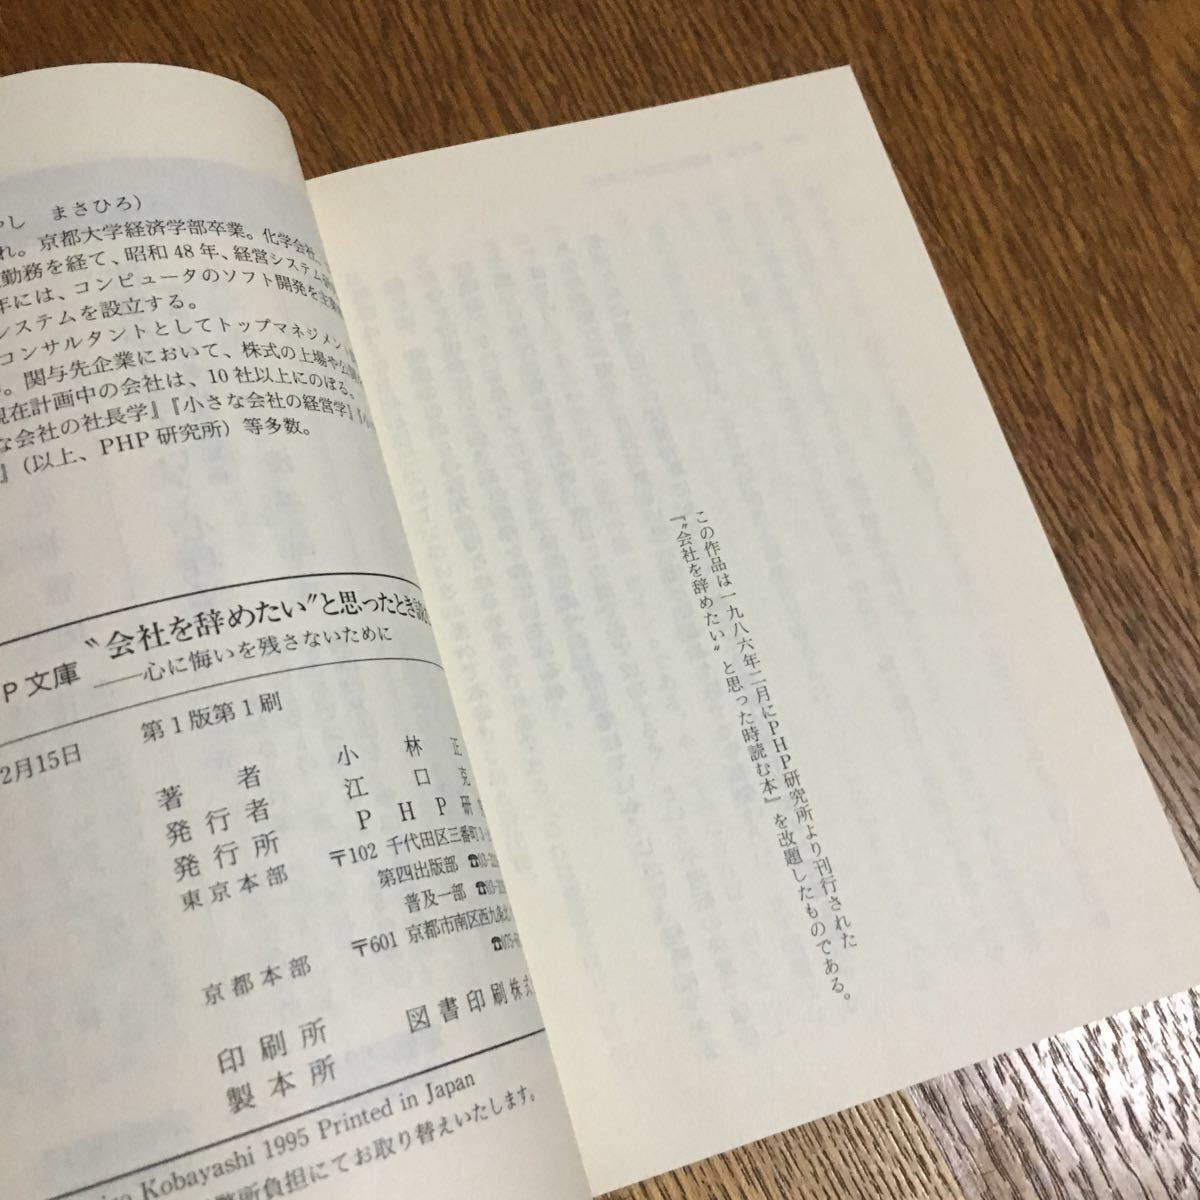 やし　まさひろ）
れ。京都大学経済学部卒業。化学会社、
勤務を経て、昭和48年、経営システム
年には、コンピュータのソフト開発を主
システムを設立する。
コンサルタントとしてトップマネジメント
。関与先企業において、株式の上場や
現在計画中の会社は、10社以上にのぼる。
な会社の社長学』『小さな会社の経営学』
』（以上、PHP研究所）等多数。
P文庫
〝会社を辞めたい〟と思ったとき
――心に悔いを残さないために
2月15日　第1版第1刷
著者　小林正
発行者　江口克
発行所　PHP研
東京本部　〒102 千代田区三番町3
第四出版部 ☎03
普及一部 ☎03
京都本部　〒601 京都市南区西九条北
☎075
印刷所　図書印刷株式
製本所
Kobayashi 1995 Printed in Japan
所負担にてお取り替えいたします。
この作品は一九八六年二月にPHP研究所より刊行された
『〝会社を辞めたい〟と思った時読む本』を改題したものである。